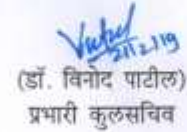 21/2/19
(डॉ. विनोद पाटील)
प्रभारी कुलसचिव